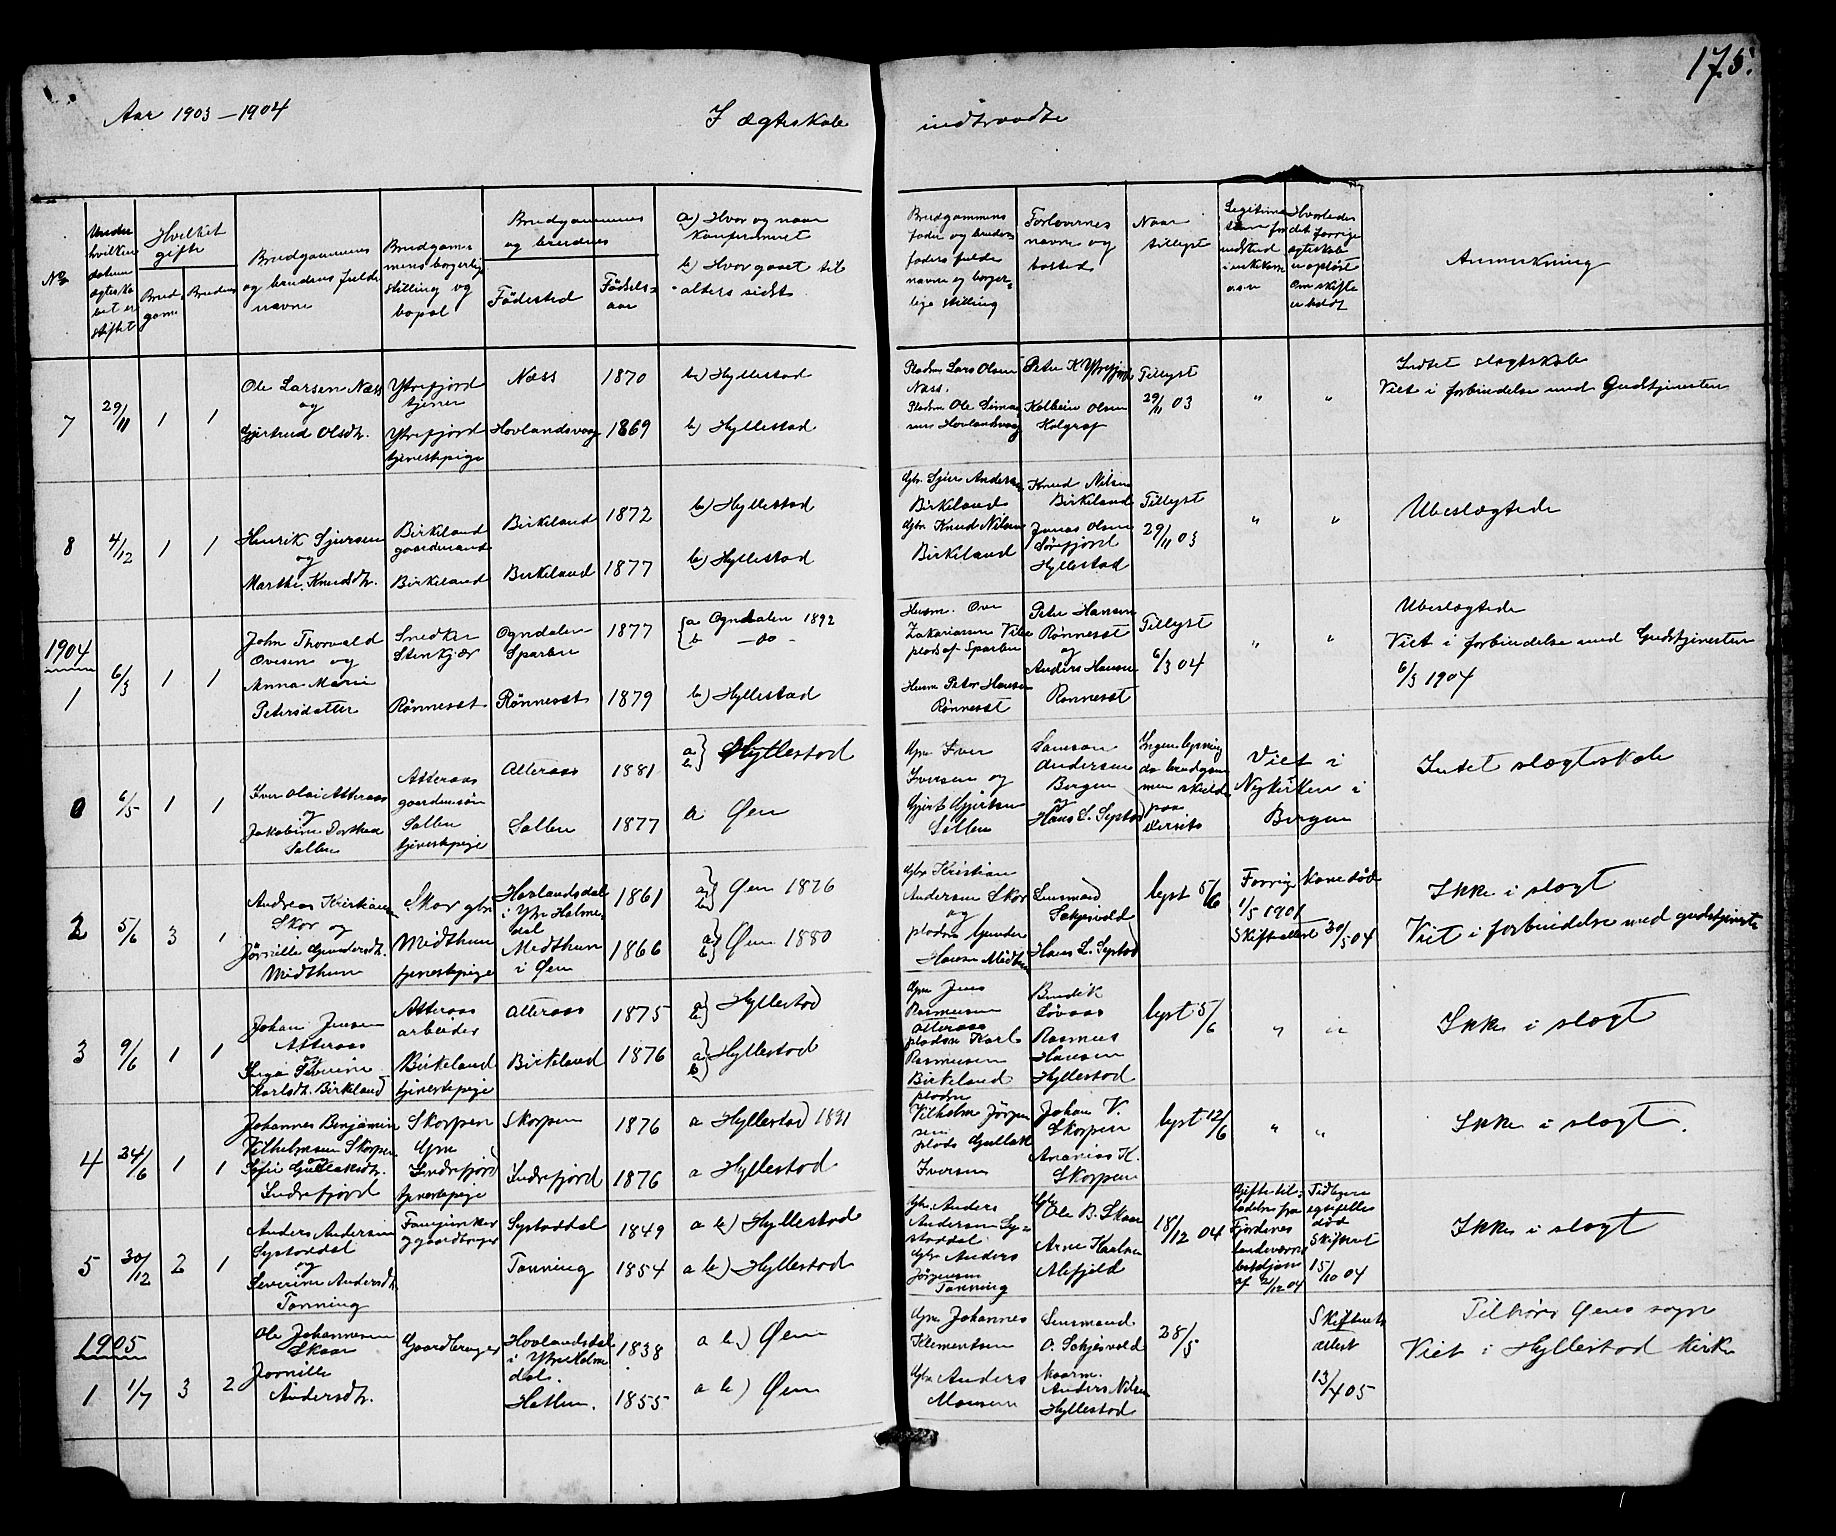 175.
Aar 1903-1904
I ægteskab indtraadte
No
Under hvilken datum ægteskabet er stiftet
Hvilket gifte
Brudgoms
Brudens
Brudgommens og brudens fulde navne
Brudgommens borgerlige stilling og bopæl
Brudgommens og brudens
Fødested
Fødselsaar
a) Hvor og naar konfirmeret
b) Hvor gaaet til alters sidst
Brudgommens fader og brudens faders fulde navne og borgerlige stilling
Forlovernes navne og bosted
Naar tillyst
Anmerkning
7
29/11
1
1
Ole Larsen Næss
og
Gjertrud Olsdtr.
Ytrefjord
tjener
Ytrefjord
tjenestepige
Næss
Hovlandsvaag
1870
1869
b) Hyllestad
b) Hyllestad
Pladsm Lars Olsen
Næss.
Pladsm Ole
Hovlandsvaag
Peter K Ytrefjord
Kolbein Olsen
Kolgrof
Tillyst
29/11 03
"
"
Intet slægtskab
Viet i forbindelse med Gudstjenesten
8
4/12
1
1
Henrik Sjursen
og
Marthe Knudsdtr.
Birkeland
gaardmand
Birkeland
Birkeland
Birkeland
1872
1877
b) Hyllestad
b) Hyllestad
Gbr. Sjur Andersen
Birkeland
Gbr. Knud Nilsen
Birkeland
Knud Nilsen
Birkeland
Jonas Olsen
Sørefjord
Hyllestad
Tillyst
29/11 03
"
"
Ubeslægtede
1904
1
6/3
1
1
John Thorvald
Ovesen og
Anna Marie
Petersdatter
Snedker
Stenkjær
Rønneset
Ogndalen
Sparbu
Rønneset
1877
1879
a Ogndalen 1892
b -do-
b) Hyllestad
Husm. Ove
Zakariassen
plads af Sparbu
Husm Peter Hansen
Rønneset
Peter Hansen
Rønneset
og
Anders Hansen
Rønneset
Tillyst
6/3 04
"
"
Ubeslægtede
Viet i forbindelse med Gudstjenesten
6/3 1904
0
6/5
1
1
Iver Olai Atteraas
og
Jakobine Dorthea
Sollen
Atteraas
gaardmansøn
Sollen
tjenestepige
Atteraas
Sollen
1881
1877
a b} Hyllestad
a Øen
Gbr. Iver
Iversen og
Gjert Gjertsen
Sollen
Samson
Andersen
Bergen
og
Hans L. Systad
Ingen lysning
da brudgommen
paa
Viet i
Nykirken i
Bergen
Intet slægtskab
2
5/6
3
1
Andreas Kristiansen
Skor og
Jørnille Gundersdtr.
Midthun
Skor gbr.
Midthun
tjenestepige
Hovlandsdal
i Ytre Holmedal
Midthun
i Øen
1861
1866
a b} Øen 1876
a b} Øen 1880
Gbr Kristian
Andersen Skor
og
pladsm Gunder
Hansen Midthun
Lensmand
Sakjesvold
Hans L. Systad
lyst 5/6
Forrige kone død
1/5 1901
Skifteattest 30/5 04
Ikke i slægt
Viet i forbindelse med gudstjeneste
3
9/6
1
1
Johan Jensen
Atteraas
og
Inga Severine
Karlsdtr. Birkeland
Atteraas
arbeider
Birkeland
tjenestepige
Atteraas
Birkeland
1875
1876
a b} Hyllestad
a b} Hyllestad
Gbr. Jens
Rasmussen
Atteraas
pladsm Karl
Rasmussen
Birkeland
Bendik
Løvaas
Rasmus
Hansen
Hyllestad
lyst 5/6
"
"
Ikke i slægt
4
24/6
1
1
Johannes Benjamin
Vilhelmsen Skorpen
og
Sofie Gullaksdtr.
Indrefjord
Skorpen
Gbr.
Indrefjord
tjenestepige
Skorpen
Indrefjord
1876
1876
a Hyllestad 1891
a Hyllestad
pladsm
Vilhelm Jørgensen
plads Gullak
Iversen
Johan V.
Skorpen
Ananias K.
Skorpen
lyst 12/6
"
"
Ikke i slægt.
5
30/12
2
1
Anders Andersen
Systaddal
og
Severine Andersdtr.
Tonning
Fanejunker
og gaardbruger
Systaddal
Tonning
1849
1854
a b) Hyllestad
a b) Hyllestad
Gbr. Anders
Andersen Systaddal
Gbr. Anders
Jørgensen
Tonning
Gbr
Ole B. Skaar
Arne Karlsen
Alefjeld
18/12 04
Giftetilladelse fra
Fjordenes
landeværns
bataljon
af 2/12 04
Tidligere
egtefelle
død
Skifteret
15/10 04
Ikke i slægt
1905
1
1/7
3
2
Ole Johannesen
Skaar
Jørnille
Andersdtr.
Gaardbruger
Hovlandsdal
i Ytre Holmedal.
Hatlem.
1838
1855
a b) Øen
a b) Øen
Gbr. Johannes
Klementsen
Gbr. Anders
Monsen
Lensmand
O. Sakjesvold
Anders Nilsen
Hyllestad
28/5
Skifterets
attest
13/4 05
Tilhører Øens sogn
Viet i Hyllestad kirke